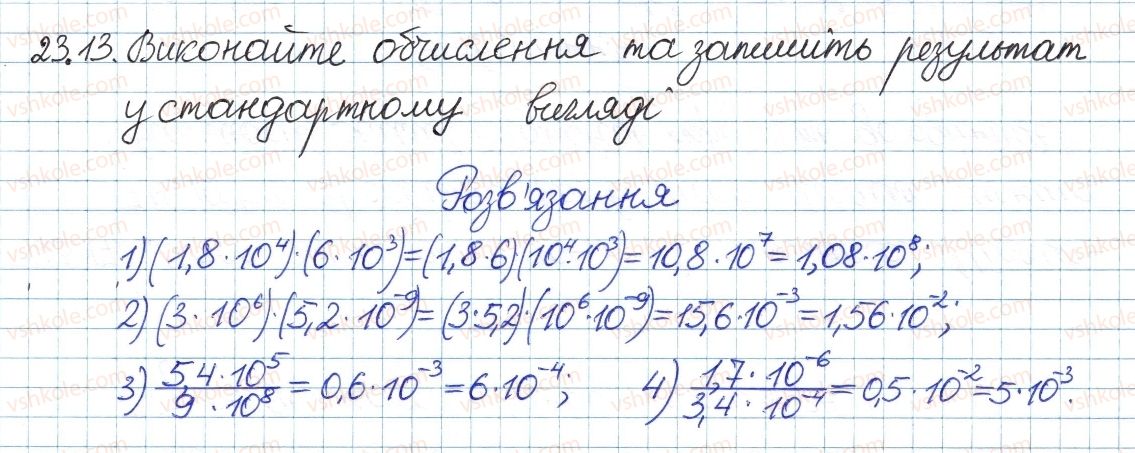 23.13. Виконайте обчислення та запишіть результат
у стандартному вигляді
Розв'язання
1) (1,8·10⁴)·(6·10³)=(1,8·6)(10⁴·10³)=10,8·10⁷=1,08·10⁸;
2) (3·10⁶)·(5,2·10⁻⁹)=(3·5,2)·(10⁶·10⁻⁹)=15,6·10⁻³=1,56·10⁻²;
3) 5,4·10⁵/9·10⁸=0,6·10⁻³=6·10⁻⁴; 4) 1,7·10⁻⁶/3,4·10⁻⁴=0,5·10⁻²=5·10⁻³.